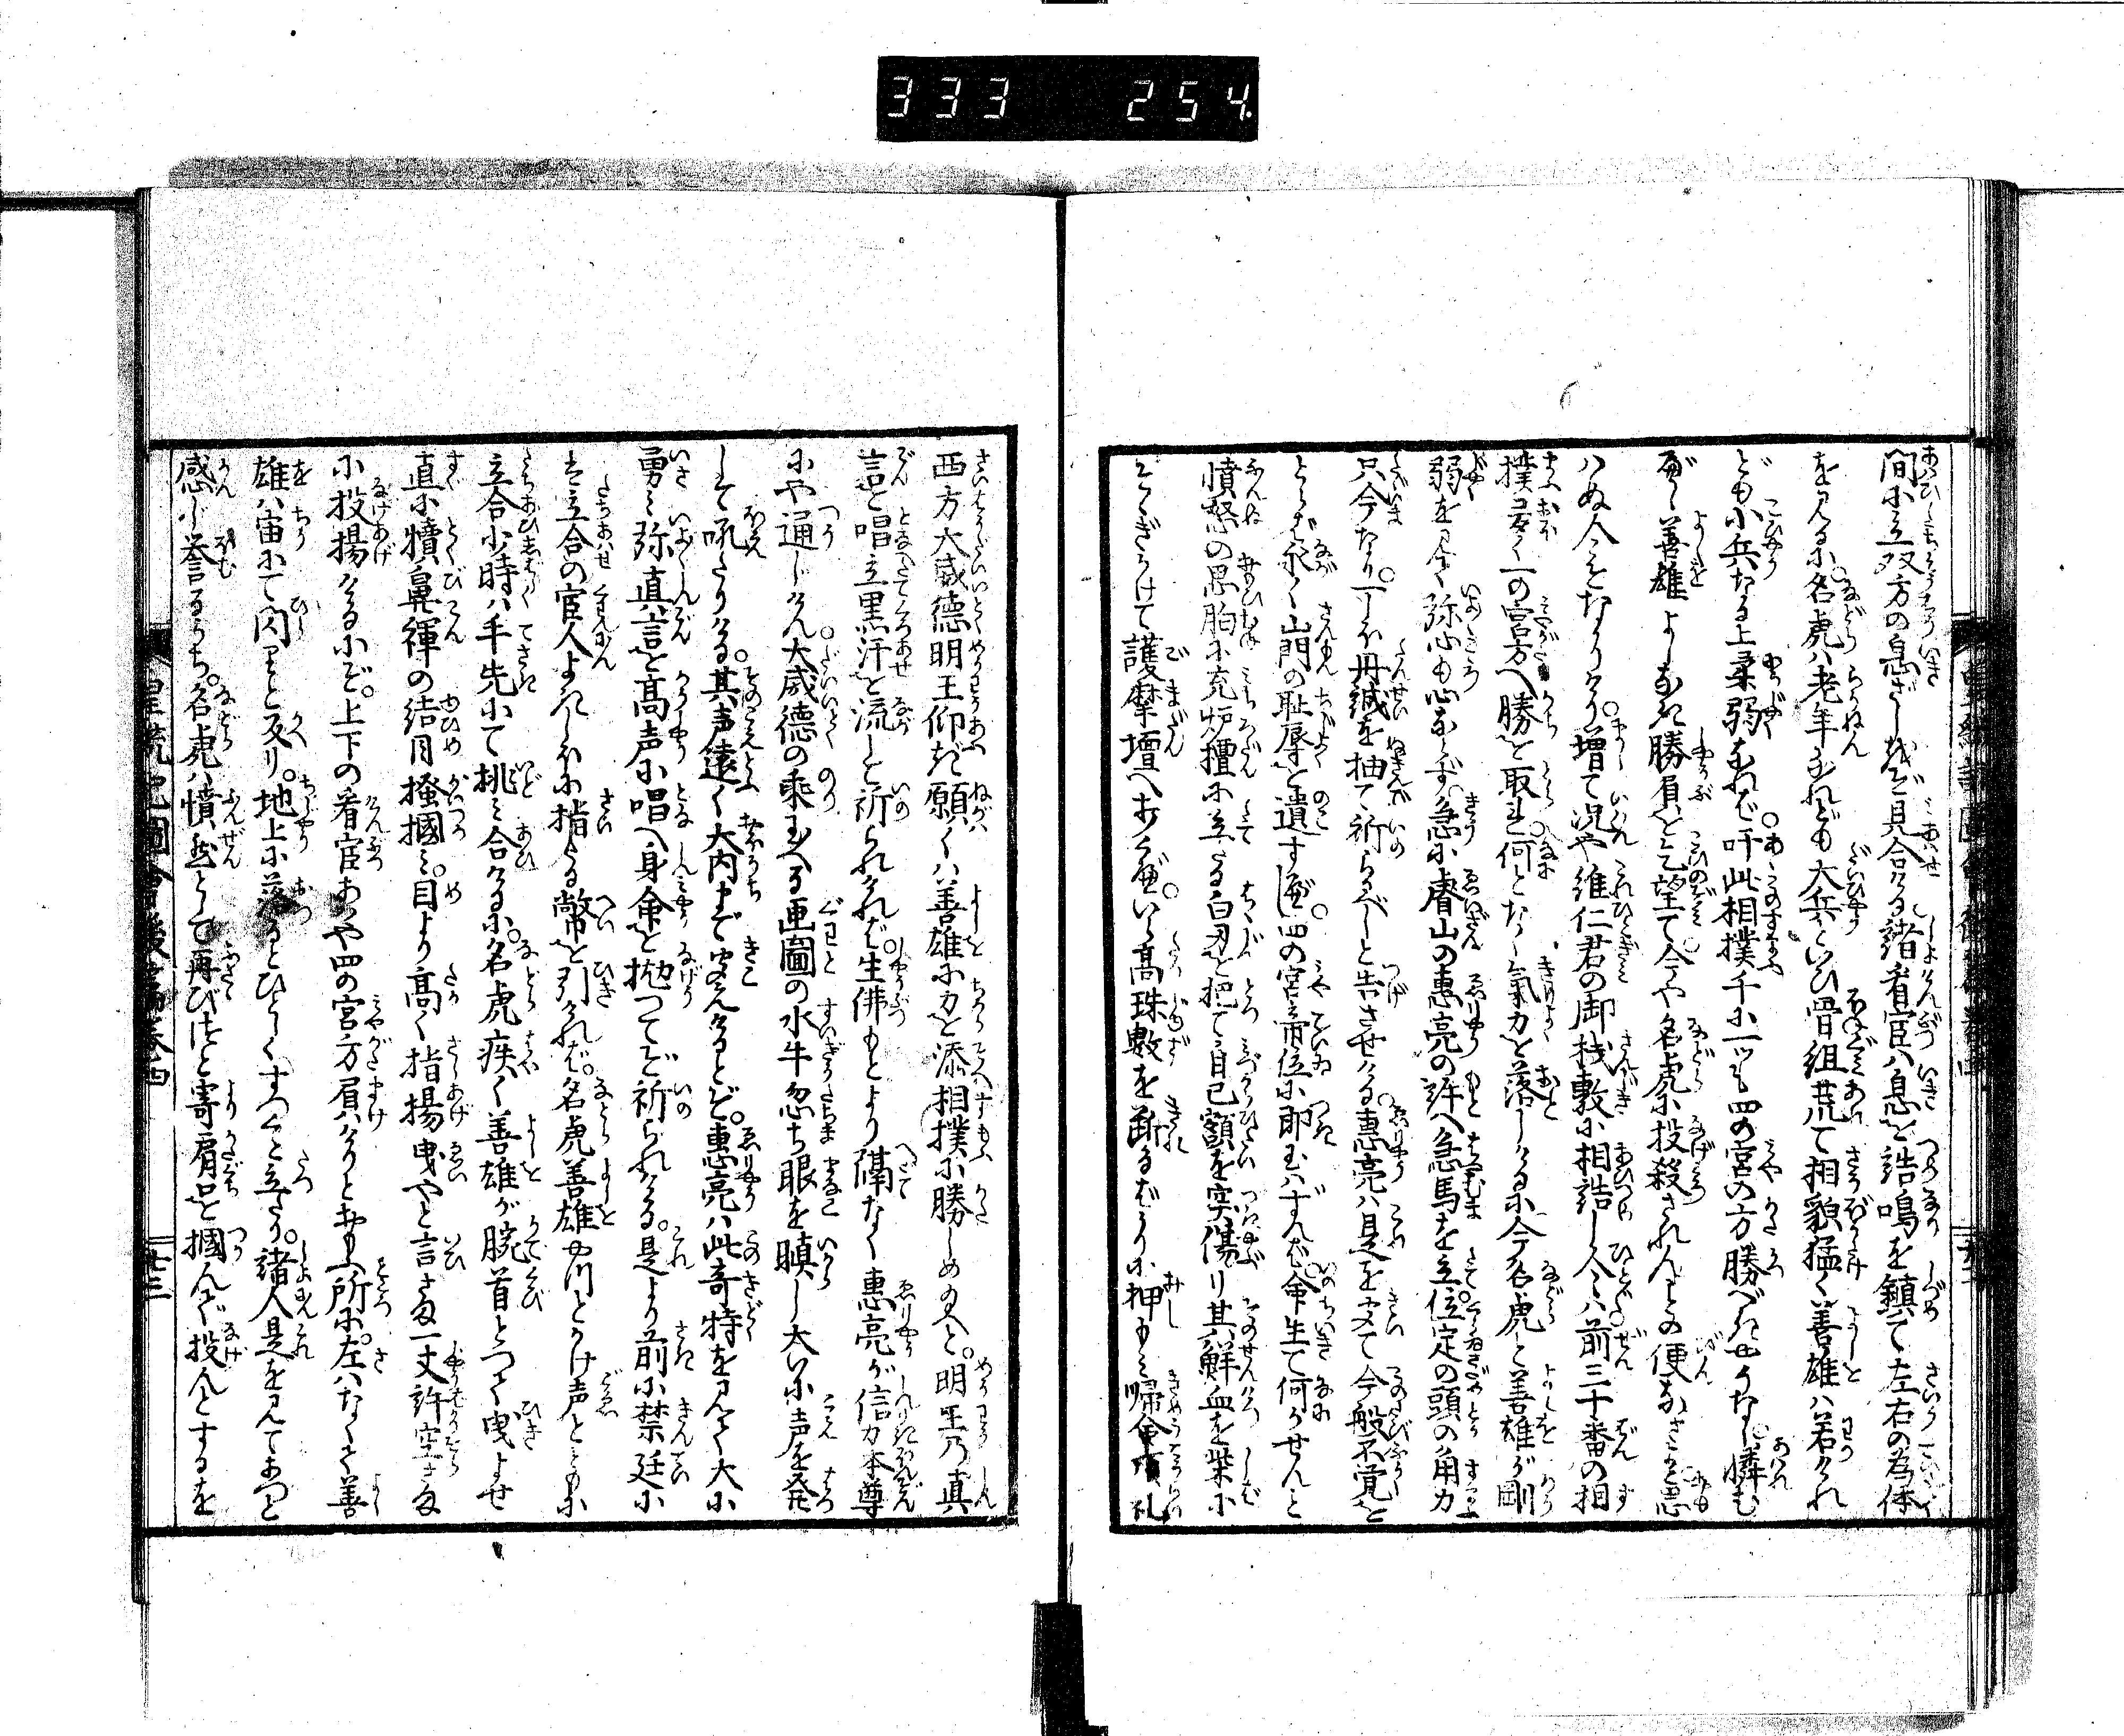 333 254
間に立双方の息ざし哉ど見合ける諸看官ハ息を詰鳴を鎮て左右の為体
を見るに名虎ハ老年なれども大兵といひ骨組荒て相貌猛く善雄ハ若けれ
ども小兵なる上柔弱なれば吁此相撲千に一ツも四の宮の方勝べきやうなし憐む
べし善雄よしなき勝負を乞望て今や名虎に投殺されんとの便なさよと思
ハぬ人こそなかりけり増て況や維仁君の御桟敷に相詰し人々ハ前三十番の相
撲多く一の宮方へ勝を取れ何となく氣力を落しけるに今名虎と善雄が剛
弱を見て弥心も心ならず急に睿山の惠亮の許へ急馬を立位定の頭の角力
只今なり一しほ丹誠を抽て祈らるべしと告させける惠亮ハ是を聞て今般不覚を
とらば永く山門の恥辱を遺すべし四の宮帝位に即玉ハずんば命生て何かせんと
憤怒の思胸に充炉壇に立たる白刃を把て自己額を突傷り其鮮血を柴に
そゝぎかけて護摩壇へ打くべいら高珠數を断るばかりに押もミ帰命頂礼
西方大威徳明王仰ぎ願くハ善雄に力を添相撲に勝しめ玉へと明王乃真
言を唱立黒汗を流して祈られけれバ生佛もとより隔なく惠亮が信力本尊
にや通じけん大威徳の乗玉へる画圖の水牛忽ち眼を瞋し大いに声を発
して吼たりける其声遠く大内まで聞えけるとぞ惠亮ハ此奇特を見て大に
勇ミ弥真言を高声に唱へ身命を抛つてぞ祈られける是より前に禁廷に
ハ立合の官人よきしほに指たる幣を引けれバ名虎善雄やつとかけ声とともに
立合少時ハ手先にて挑ミ合けるに名虎疾く善雄が腕首とつて曳よせ
直に犢鼻褌の結目掻摑ミ目より高く指揚曳やと言さま一丈許空さま
に投揚けるにぞ上下の看官あハや四の宮方負けりと思ふ所に左ハなくて善
雄ハ宙にて閃りと反り地上に落るとひとしくすつくと立たり諸人是を見てあつと
感じ誉るうち名虎ハ憤然として再びむずと寄肩を摑んで投んとするを
皇統記圖會後編巻四
廿三